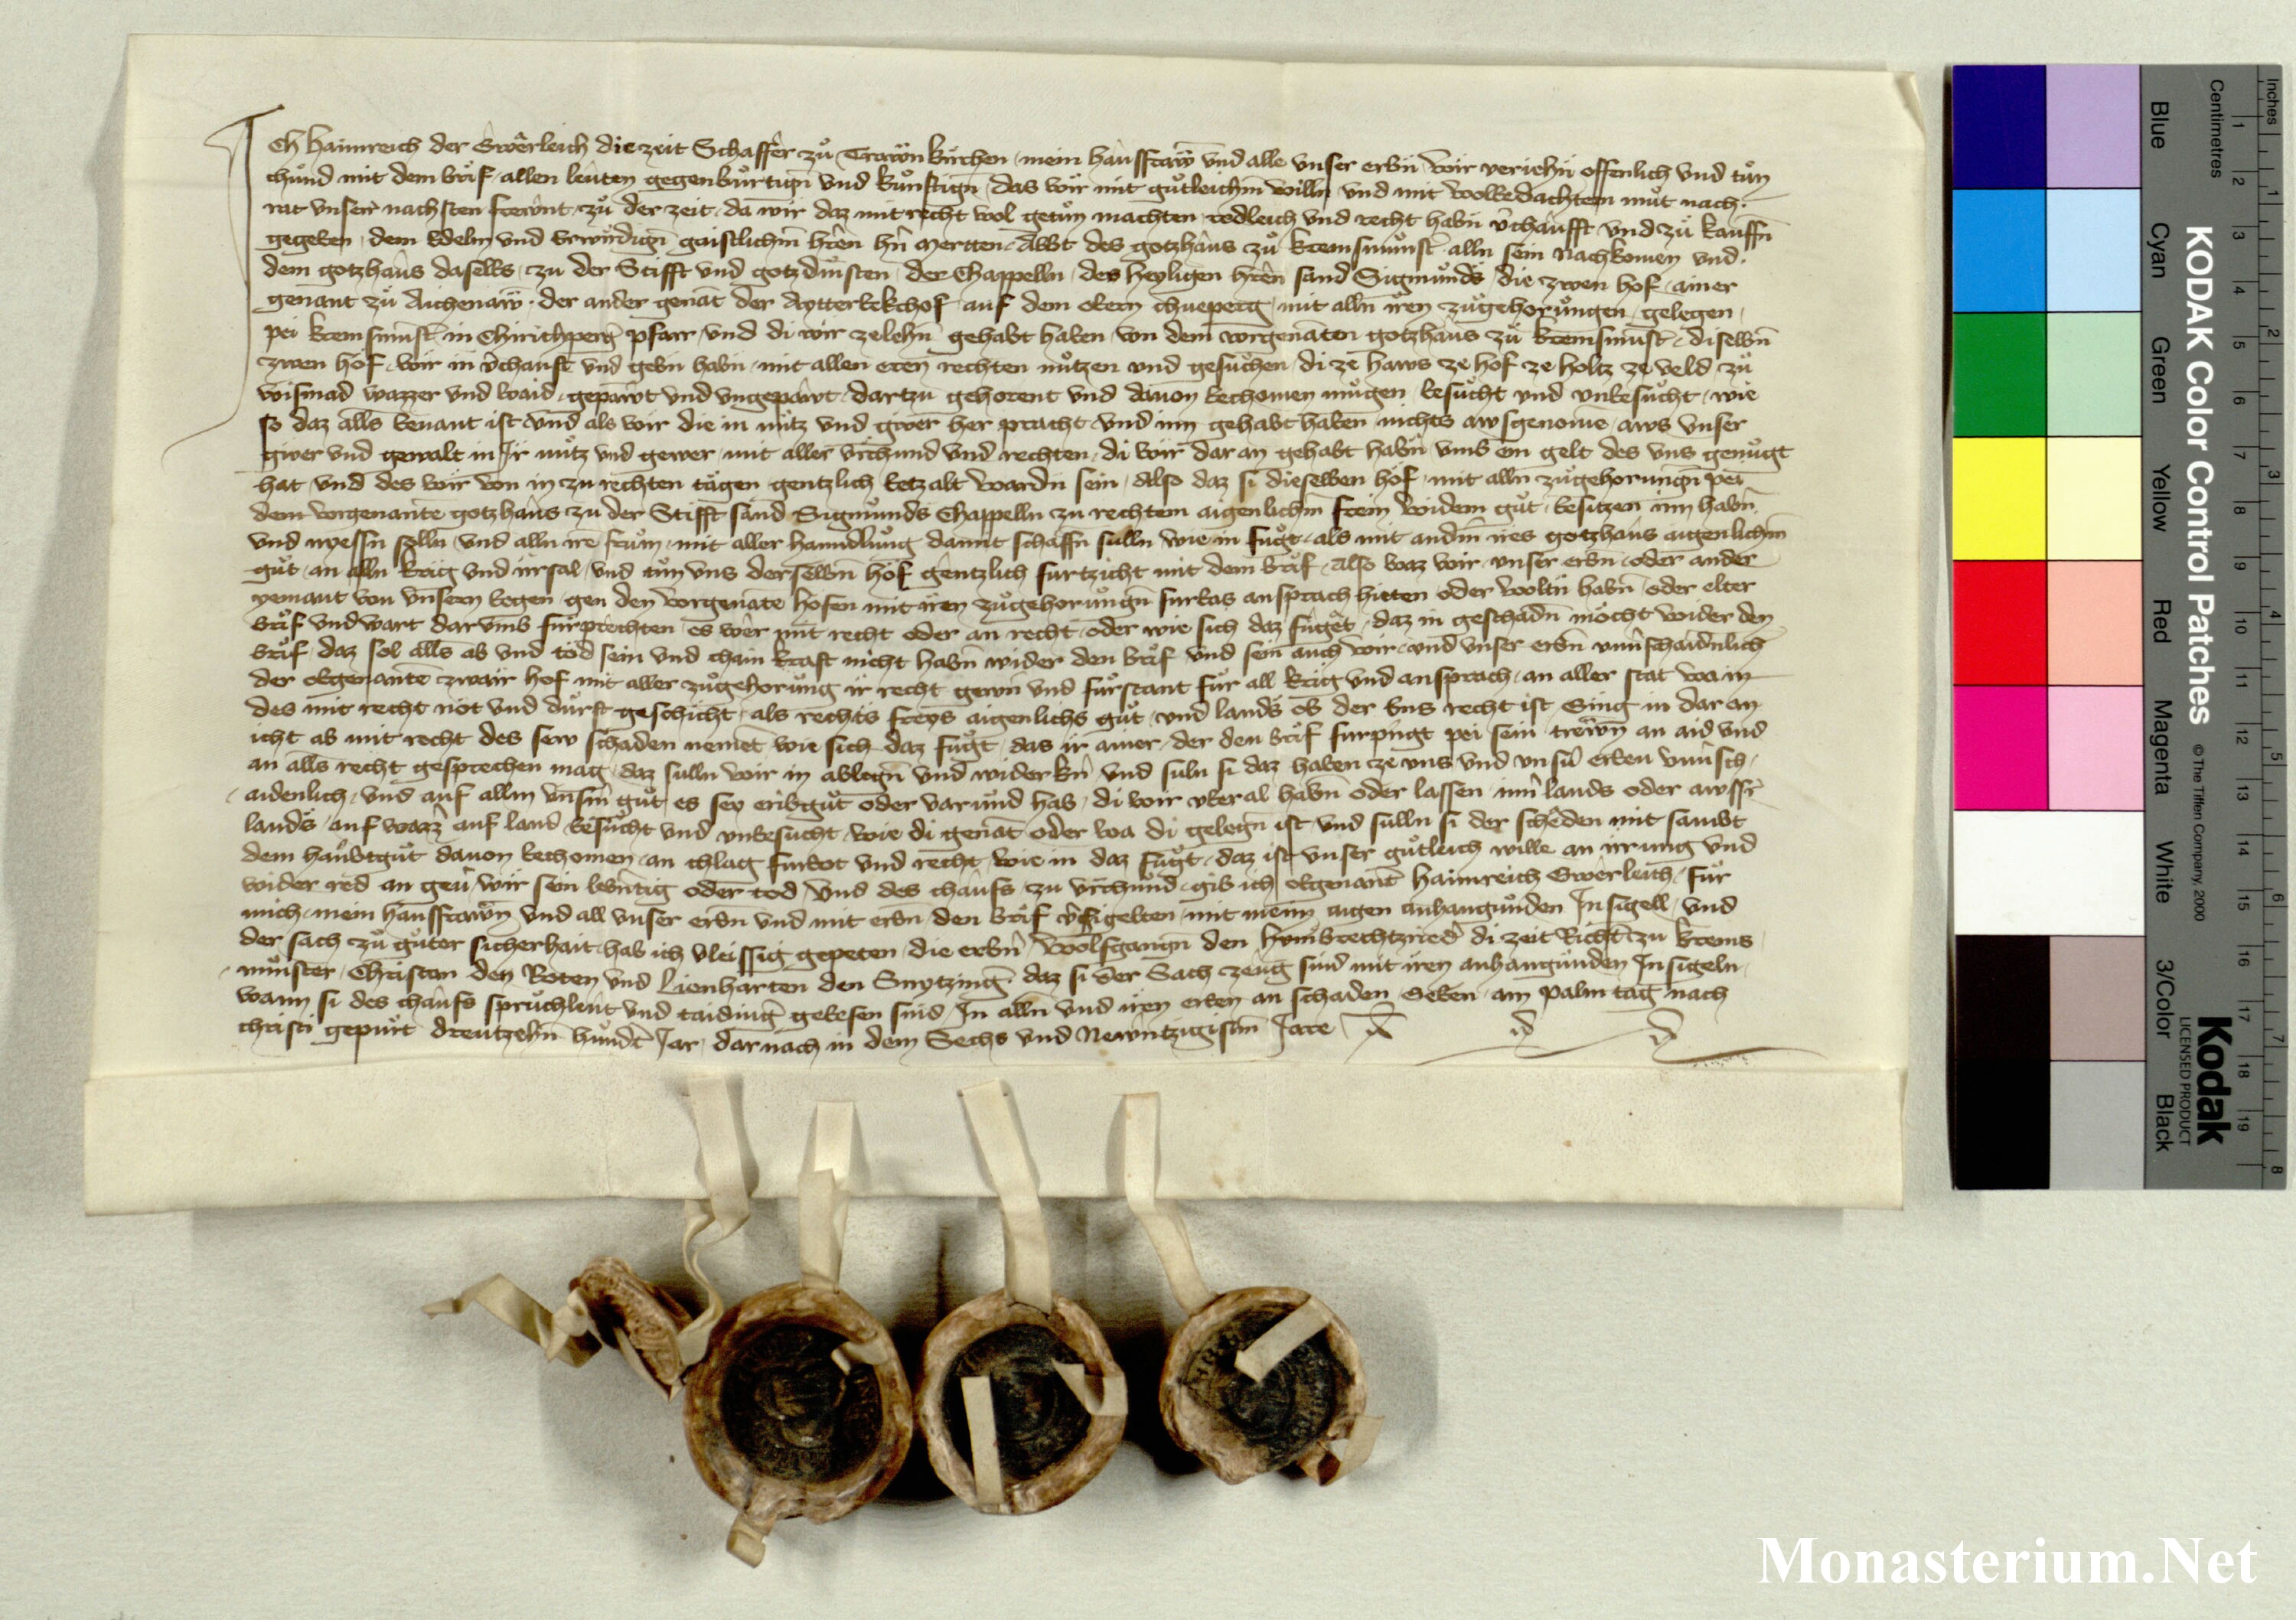 Ich Haimreich der Swêrleich die zeit Schaffer zů Trawnkirchen mein hausfraw und alle unser erbn wir veriehn offenlich und tůn
chůnd mit dem brif allen leuten gegenbůrtign und kůnftign das wir mit gůtleichm willn und mit wolbedachtem můt nach
rat unserr nachsten frewnt zů der zeit da wir daz mit recht wol getůn machten redleich und recht habn vchaufft und zů kauffn
gegeben dem Edeln und Erwirdign gaistlichm hren hn Mertten Abbt des gotzhaus zů kremsmůnst alln sein Nachkomen und
dem gotzhaus daselbs zu der Stifft und gotzdinsten der Chappelln des heyligen hren sand Sigmůnds die zwen hof ainer
genant zů Aichenaw der ander genat der Aytterbekchof auf dem obern mit alln iren zůgehorůngen gelegen
pei kremsmůnst in Chirichperg pfarr und di wir zelehn gehabt haben von dem vorgenaten gotzhaus zů kremsmůnst diselbn
zwen hof wir in vchauft und gebn habn mit allen eren rechten nůtzen und gesůchen di ze haws ze hof ze holtz ze veld zů
wismad wazzer und waid gepawt und ungepawt dartzu gehorent und dauon bechomen můgen besůcht und unbesůcht wie
so daz alls benant ist und als wir die in nůtz und gwer her pracht und inn gehabt haben nichts awsgenome aws unser
gwer und gewalt in Ir nůtz und gewer mit aller urchund und rechten di wir dar an gehabt habn umb ein gelt des uns genůgt
hat und des wir von in zu rechten tägen gentzlich betzalt wardn sein Also daz si dieselben hof mit alln zůgehorungn pei
dem vorgenante gotzhaus zu der Stifft sand Sigmůnds Chappelln zu rechtem aigenlichm frein widem gůt besitzen inn habn
und nyessn solln und alln ire frům mit aller hanndlůng damit schaffn sulln wie in fůgt als mit andm irs gotzhaus aigenlichm
gůt an alln krig und irrsal und tůn uns derselbn hof gentzlich furtzicht mit dem brif Also waz wir unser erbn oder ander
yemant von unsern wegen gen den vorgenate hofen mit iren zůgehorůngn furbas ansprach hietten oder woltn habn oder elter
brif und wart darumb fůrprechten es wêr mit recht oder an recht oder wie sich daz fůgêt daz in geschadn mocht wider den
brif daz sol alls ab und tod sein und chain kraft nicht habn wider den brif und sein auch wir und unser erbn unuschaidnlich
der obgenante zwair hof mit aller zůgehorůng ir recht gewn und fůrstant fůr all krig und ansprach an aller stat wa in
des mit recht not und durft geschicht als rechts freys aigenlichs gůt und lands ob der Ens recht ist Ging in dar an
icht ab mit recht des sew schaden nemet wie sich daz fůgt das ir ainer der den brif furpringt pei sein trêwn an aid und
an alls recht gesprechen mag daz sulln wir in ablegn und widerkn und suln si daz haben ze uns und unsn erben unusch
aidenlich und auf allm unsm gůt es sey eribgůt oder varund hab di wir uberal habn oder lassen inn lands oder awssr
lands auf wazz auf land besůcht und unbesucht wie di genat oder wa di gelegn ist und sulln si der schêden mit sambt
dem haubtgůt dauon bechomen an chlag furbot und recht wie in daz fůgt daz ist unser gůtleich wille an irrung und
wider red an geu wir sein lebntig oder tod und des chaufs zu urchůnd gib ich obgenant Haimreich Swêrleich fůr
mich mein hausfrawn und all unser erbn und mit erbn den brif vsigelten mit meim aigen anhangunden Insigell und
der sach zů gůter sicherhait hab ich vleissig gepeten die erbn Wolfgangn den Humbrechtzried di zeit Richt zu krems
můnster Christan den Roten und Lienharten den Smytzing daz si der Sach zeug sind mit iren anhangunden Insigeln
wann si des chaufs sprůchleut und taiding gebesen sind In alln und iren erben an schaden Geben am Palm tag nach
christi gepurt dreutzehn hůndt Jar darnach in dem Sechs und Newntzigistm Jare
Inches
Centimetres
KODAK Color Control Patches © The Tiffen Company, 2000
Kodak
LICENSED PRODUCT
Blue
Cyan
Green
Yellow
Red
Magenta
White
3/Color
Black
1 2 3 4 5 6 7 8 9 10 11 12 13 14 15 16 17 18 19
1 2 3 4 5 6 7 8
Monasterium.Net